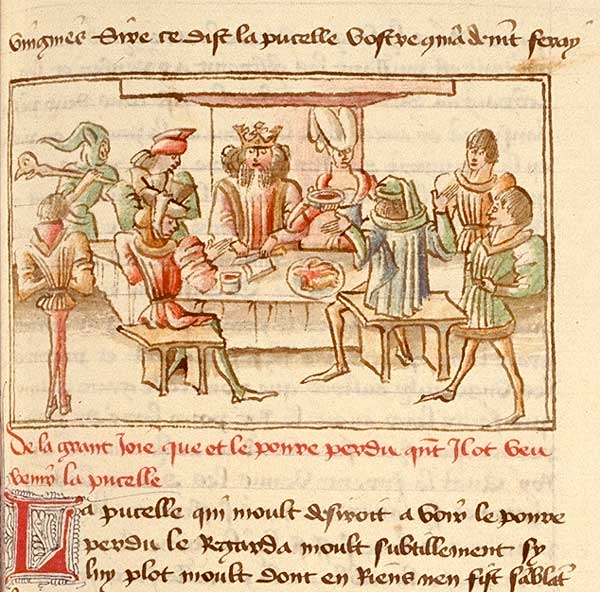 Vingnies Sire ce dist la pucelle vostre feray
De la grant Joie que et le povre perdu qnt Il ot veu
venir la pucelle
La pucelle qui moult desiroit a voir le povre
perdu le Regarda moult subtillement sy
luy plot moult dont en Riens nen fist